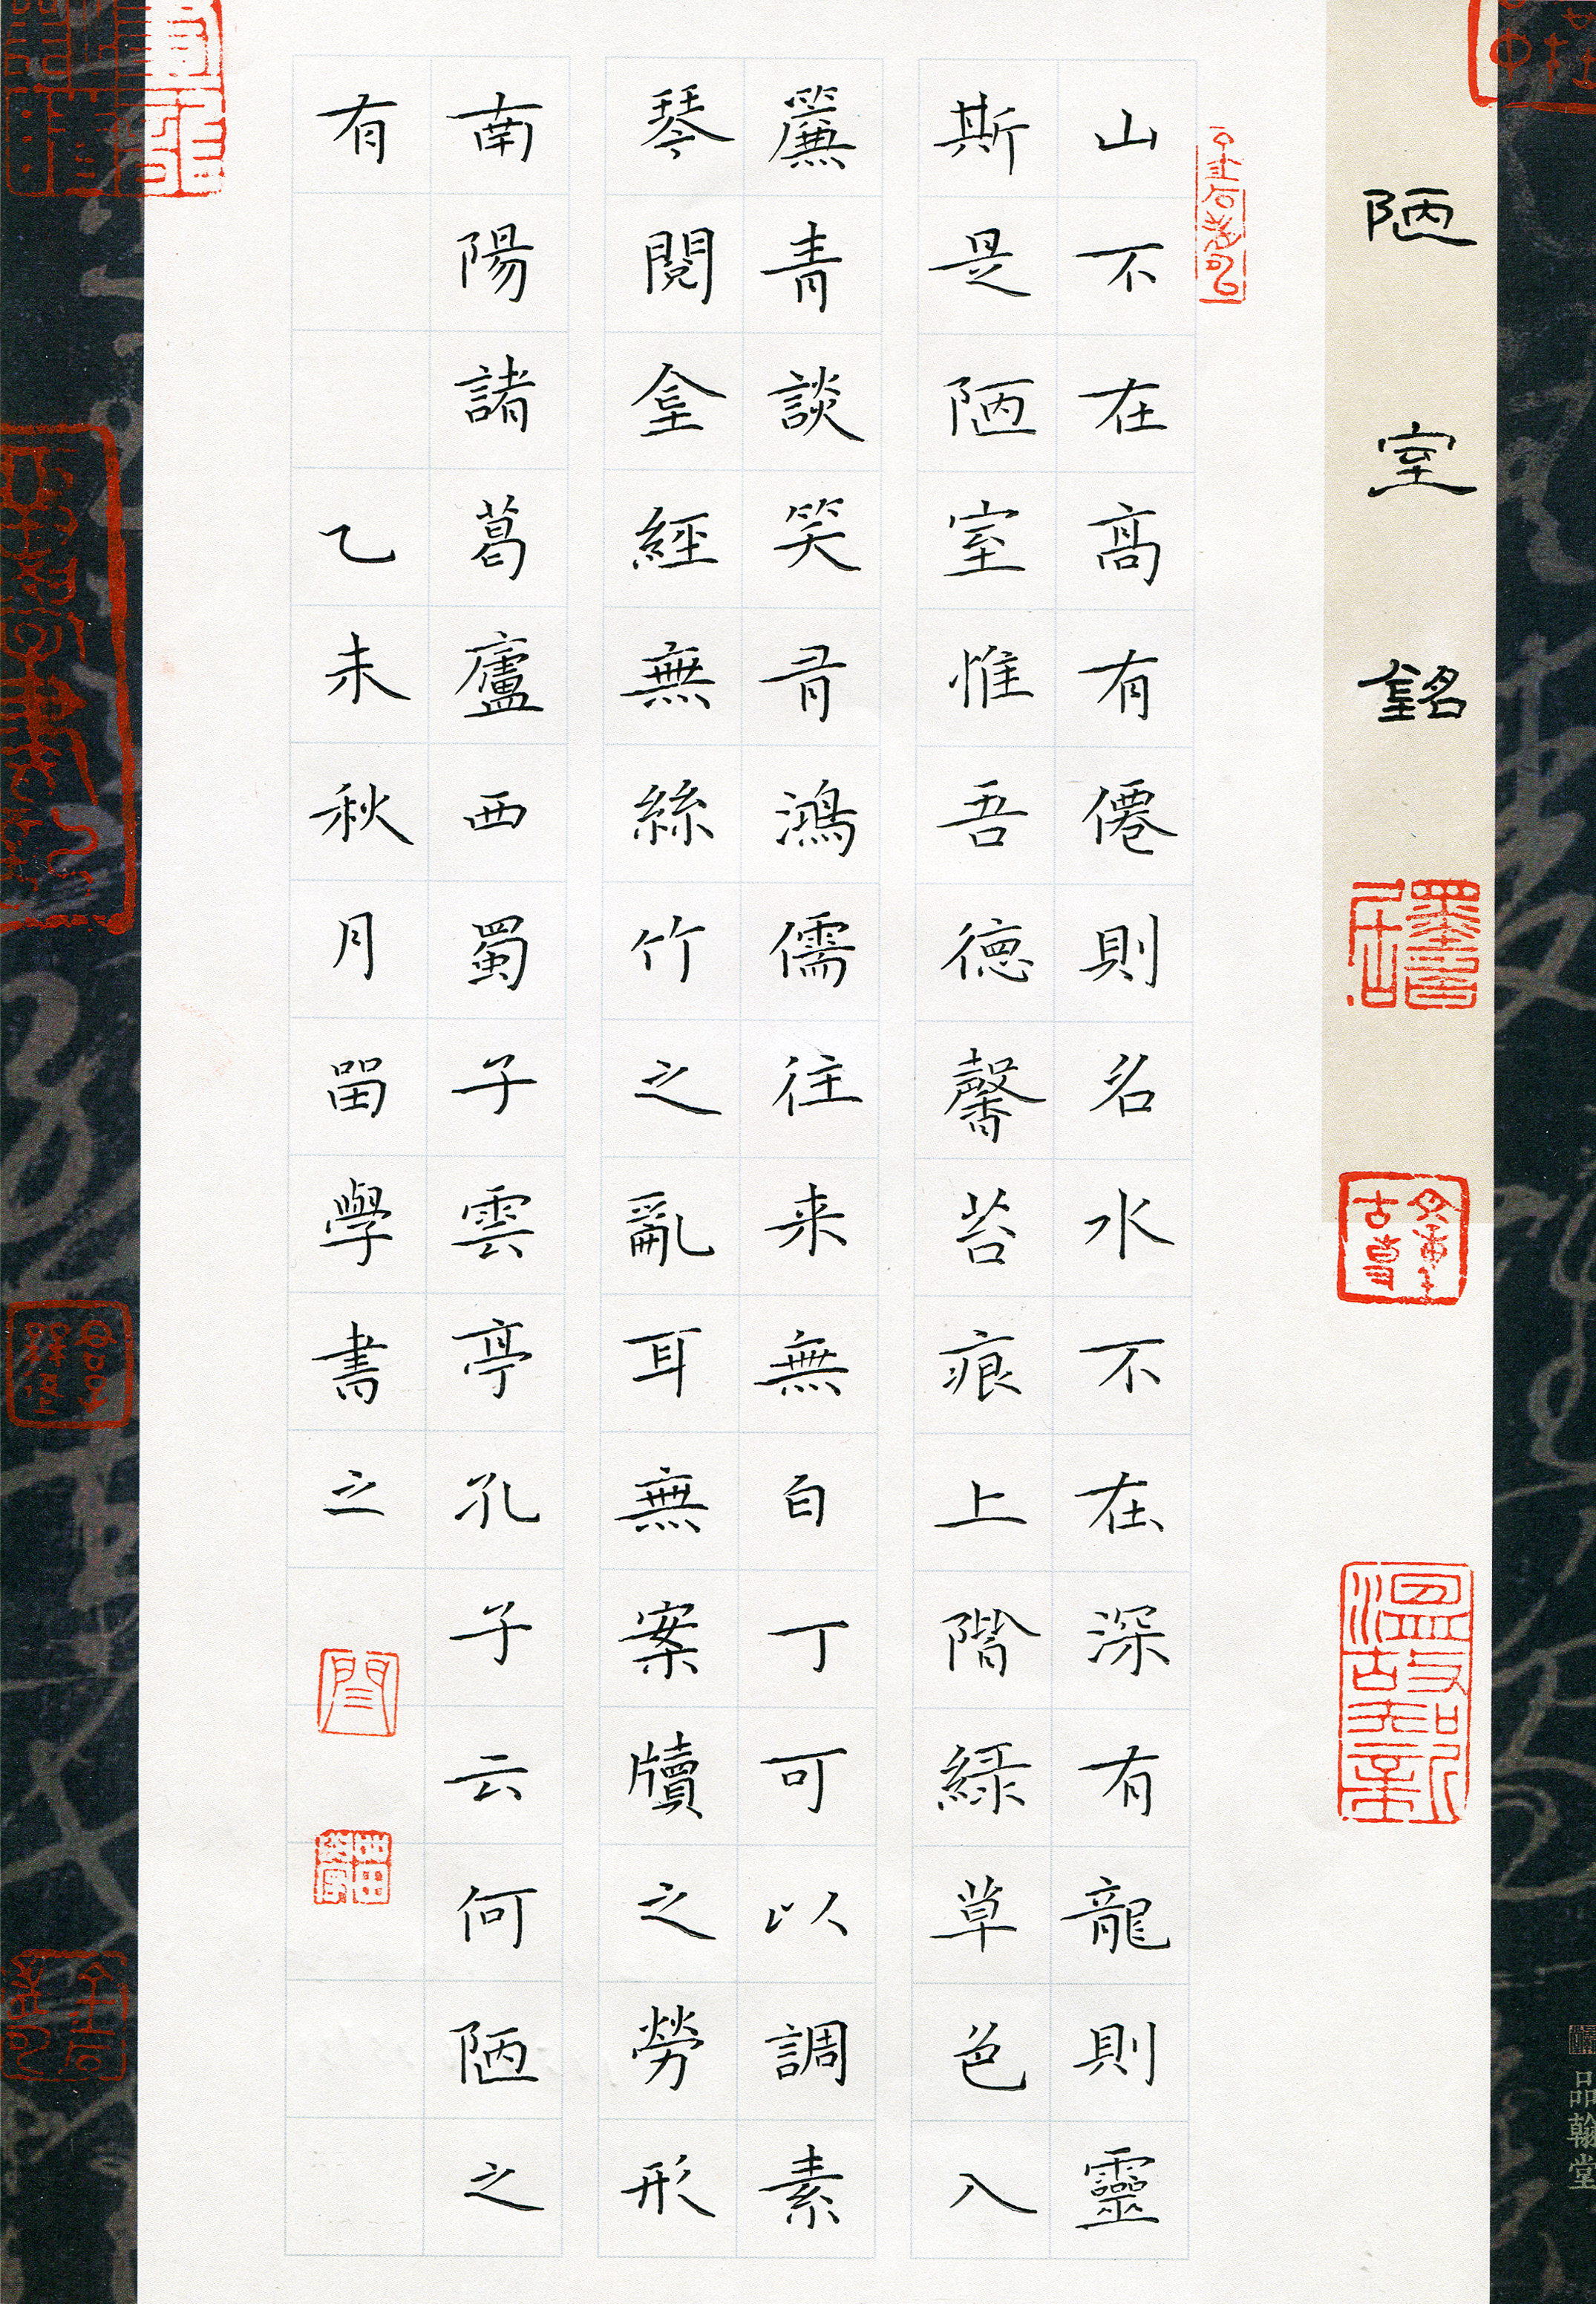 陋室銘
溫故知新
山不在高有僊則名水不在深有龍則靈
斯是陋室惟吾德馨苔痕上階綠草色入
簾青談笑有鴻儒往来無白丁可以調素
琴閱金經無絲竹之亂耳無案牘之勞形
南陽諸葛廬西蜀子雲亭孔子云何陋之
有 乙未秋月畱學書之
閆
品翰堂